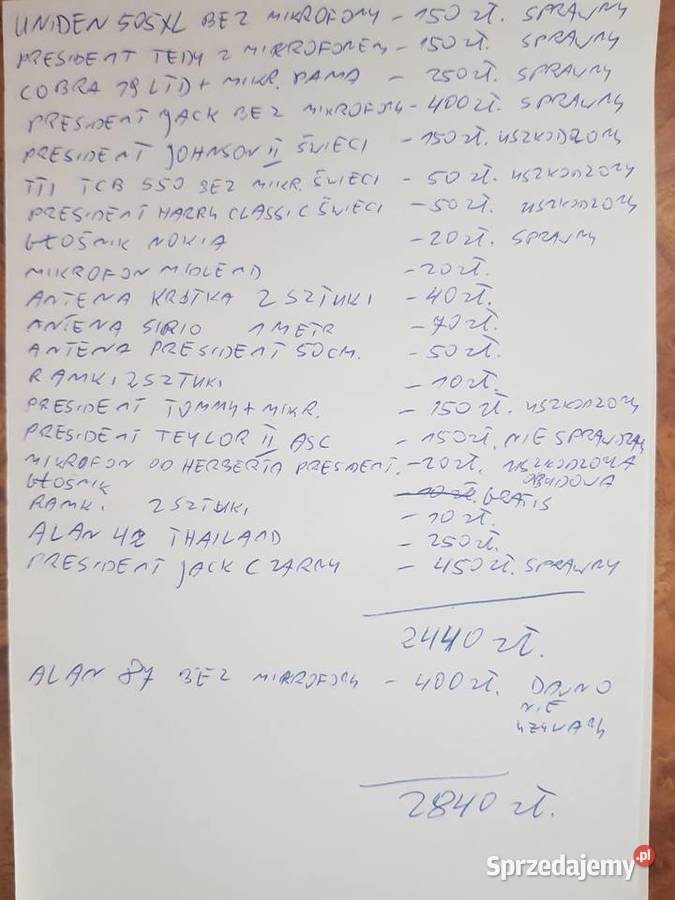 UNIDEN 505XL BEZ MIKROFONU - 150 zł. SPRAWNY
PRESIDENT TEDY Z MIKROFONEM - 150 zł. SPRAWNY
COBRA 19 LTD + MIKR. DAMA - 250 zł. SPRAWNY
PRESIDENT JACK BEZ MIKROFONU - 400 zł. SPRAWNY
PRESIDENT JOHNSON II ŚWIECI - 150 zł. USZKODZONY
TTI TCB 550 BEZ MIKR. ŚWIECI - 50 zł. USZKODZONY
PRESIDENT HARRY CLASSIC ŚWIECI - 50 zł. USZKODZONY
GŁOŚNIK NOKIA - 20 zł. SPRAWNY
MIKROFON MIDLEND - 20 zł.
ANTENA KRÓTKA 2 SZTUKI - 40 zł.
ANTENA SIRIO 1 METR - 70 zł.
ANTENA PRESIDENT 50 CM. - 50 zł.
RAMKI 2 SZTUKI - 10 zł.
PRESIDENT TOMMY + MIKR. - 150 zł. USZKODZONY
PRESIDENT TEYLOR II ASC - 150 zł. NIE SPRAWDZANY
MIKROFON OD HERBERTA PRESIDENT. - 20 zł. USZKODZONA OBUDOWA
GŁOŚNIK - 10 zł. GRATIS
RAMKI 2 SZTUKI - 10 zł.
ALAN 42 THAILAND - 250 zł.
PRESIDENT JACK CZARNY - 450 zł. SPRAWNY
2440 zł.
ALAN 87 BEZ MIKROFONU - 400 zł. DAWNO
NIE
UŻYWANY
2840 zł.
Sprzedajemy.pl